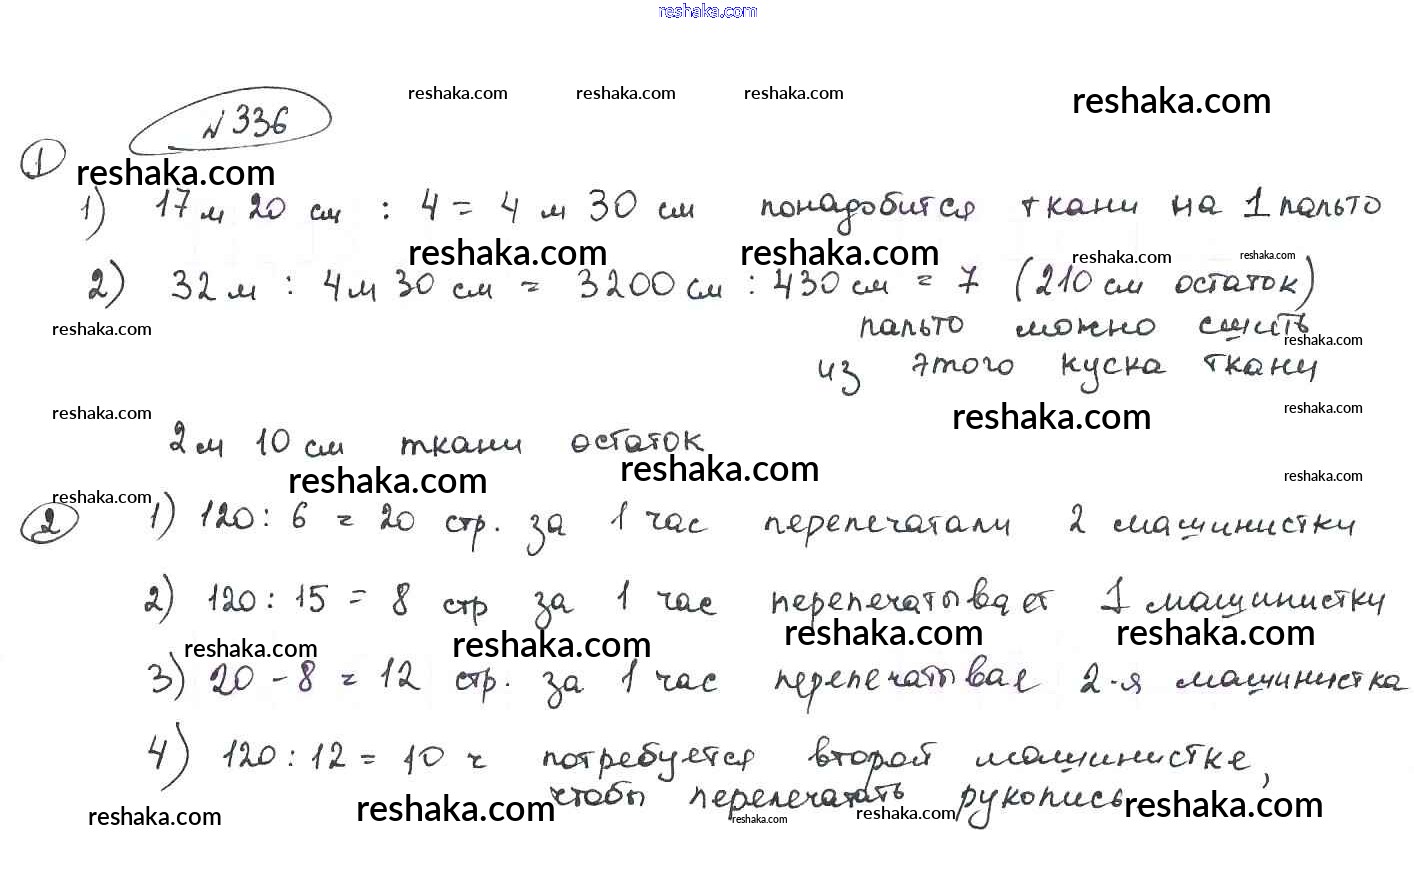 reshaka.com
reshaka.com reshaka.com reshaka.com reshaka.com
№ 336
① reshaka.com
1) 17 м 20 см : 4 = 4 м 30 см понадобится ткани на 1 пальто
reshaka.com reshaka.com reshaka.com reshaka.com
2) 32 м : 4 м 30 см = 3200 см : 430 см = 7 (210 см остаток)
reshaka.com пальто можно сшить reshaka.com
из этого куска ткани
reshaka.com reshaka.com reshaka.com
2 м 10 см ткани остаток
reshaka.com reshaka.com reshaka.com
reshaka.com
② 1) 120 : 6 = 20 стр. за 1 час перепечатали 2 машинистки
2) 120 : 15 = 8 стр за 1 час перепечатывает 1 машинистку
reshaka.com reshaka.com reshaka.com reshaka.com
3) 20 - 8 = 12 стр. за 1 час перепечатывае 2-я машинистка
4) 120 : 12 = 10 ч потребуется второй машинистке,
чтобы перепечатать рукопись
reshaka.com reshaka.com reshaka.com reshaka.com reshaka.com